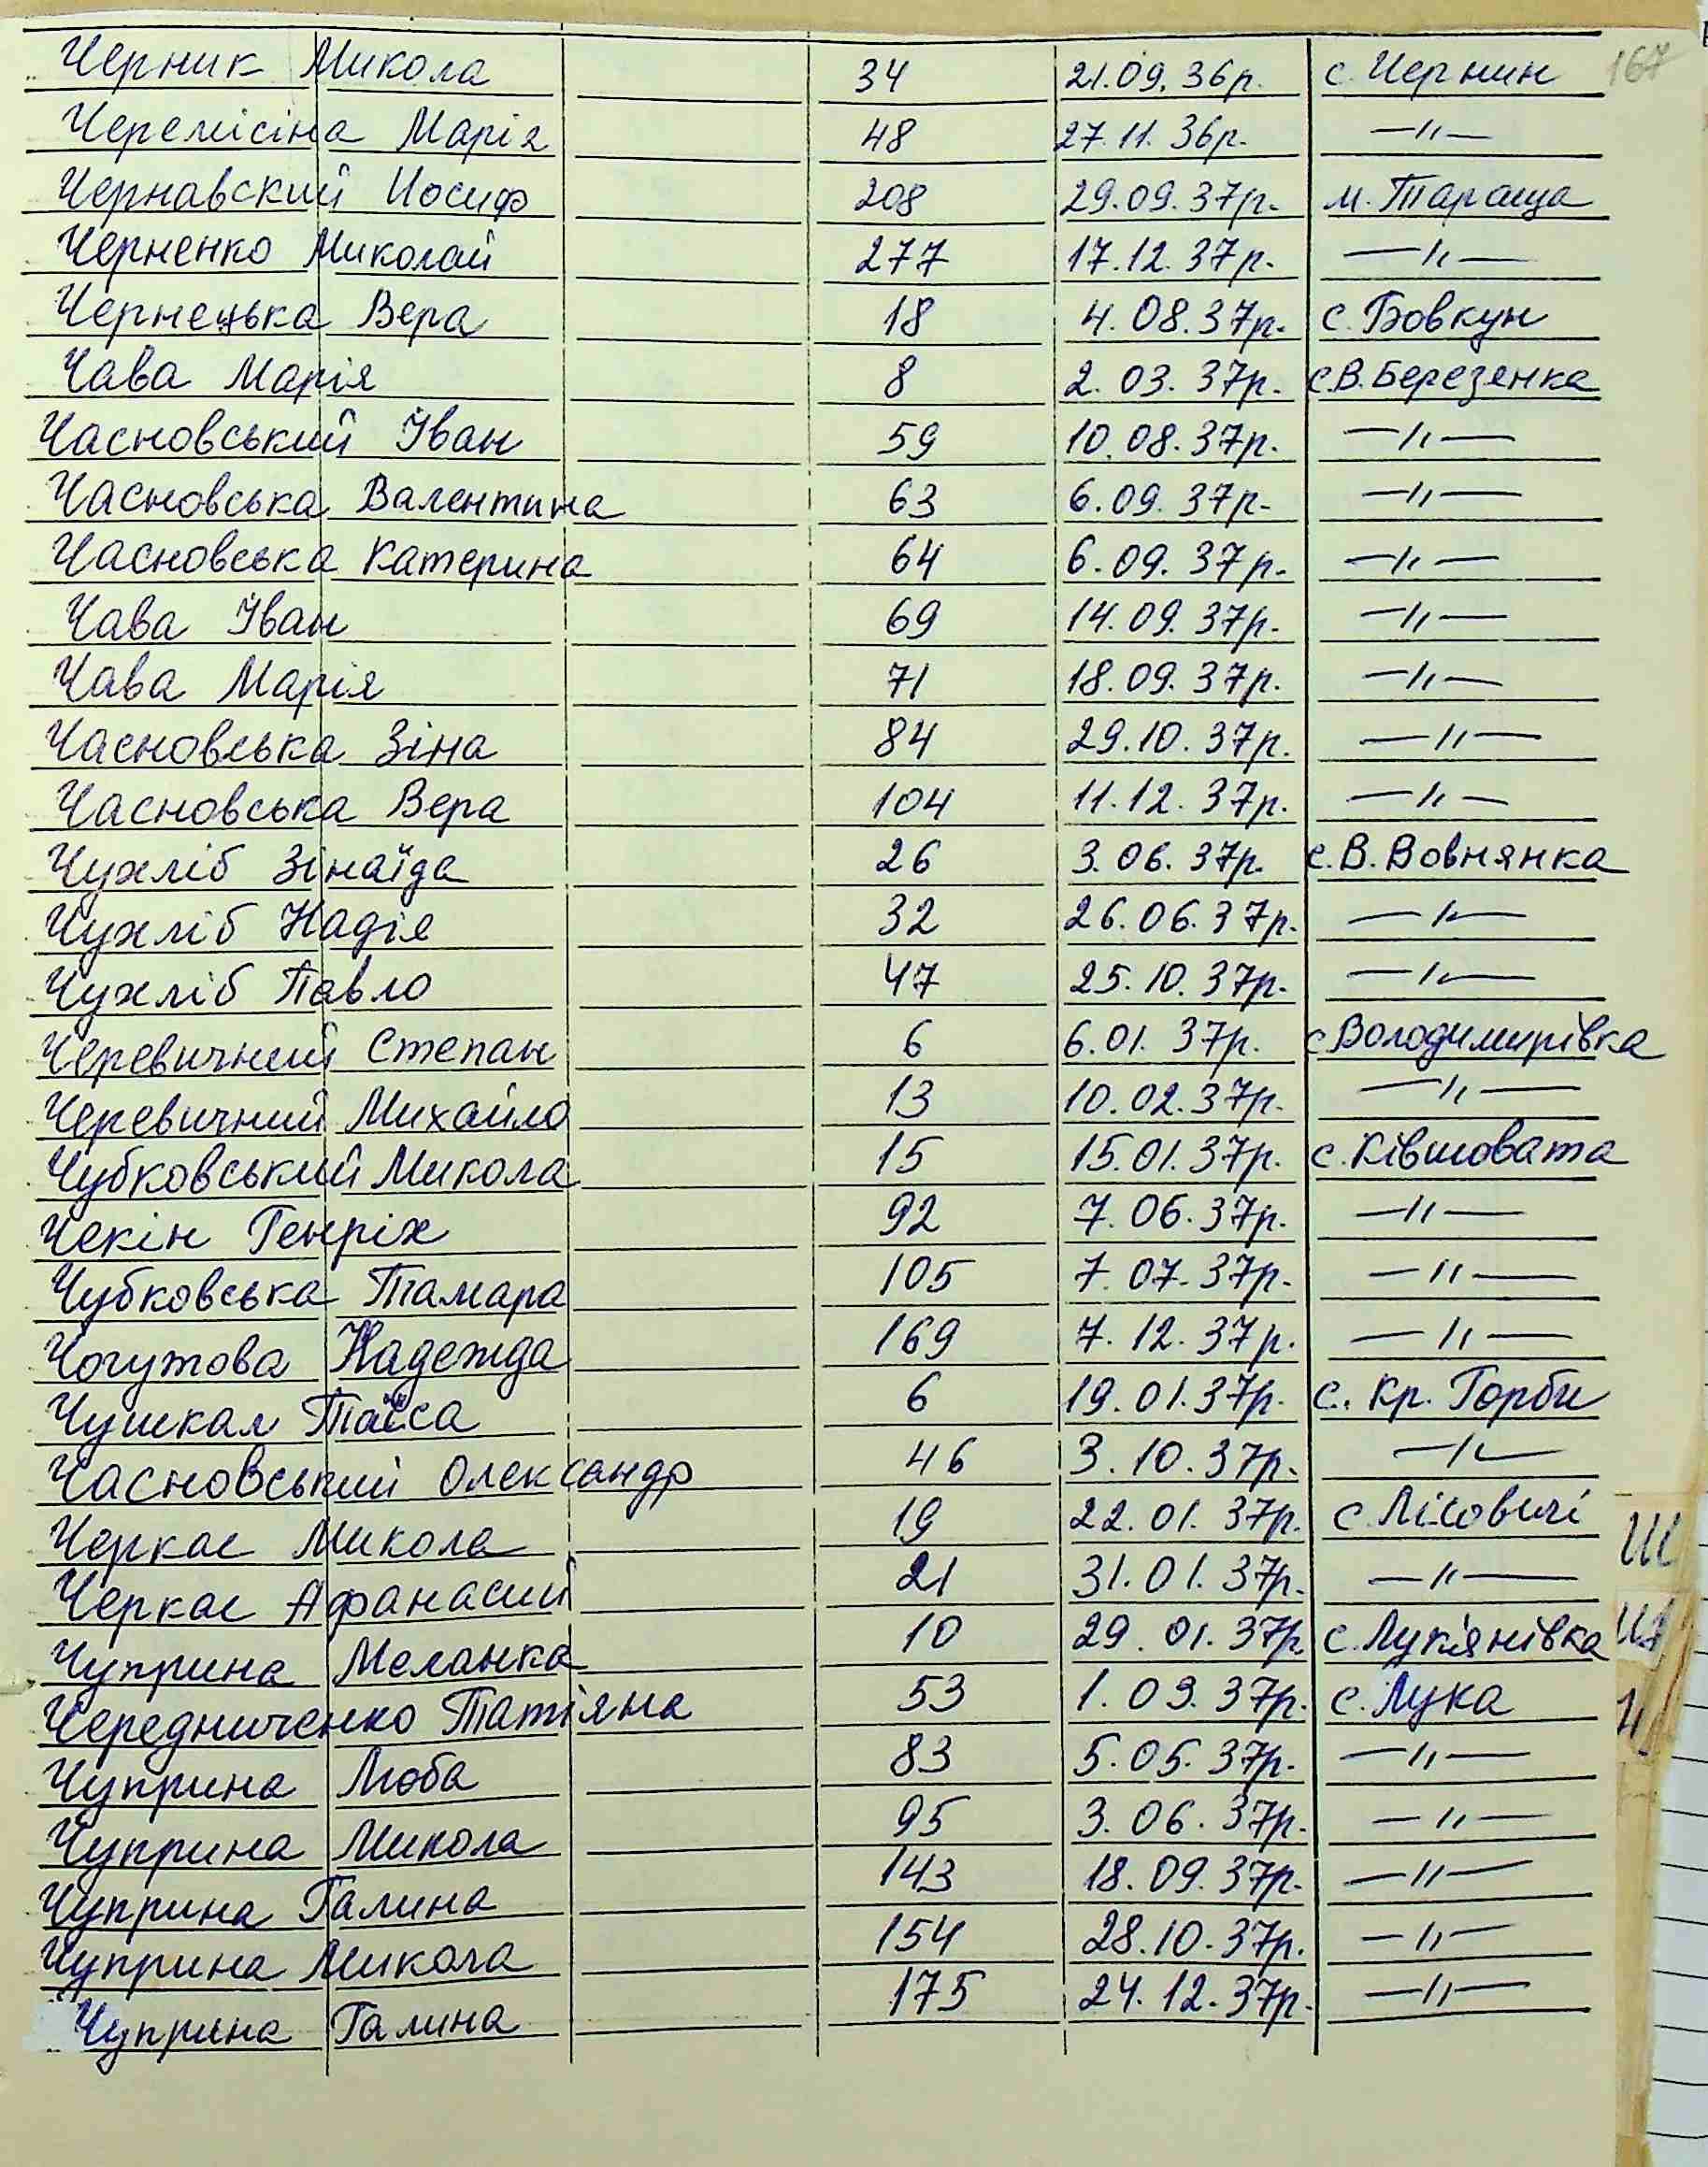 167
Черник Микола 34 21.09.36р. с. Чернин
Черемісіна Марія 48 27.11.36р. —"—
Чернавский Иосиф 208 29.09.37р. м. Тараща
Черненко Миколай 277 17.12.37р. —"—
Чернецька Вера 18 4.08.37р. с. Бовкун
Чава Марія 8 2.03.37р. с.В.Березянка
Часновський Іван 59 10.08.37р. —"—
Часновська Валентина 63 6.09.37р. —"—
Часновська Катерина 64 6.09.37р. —"—
Чава Іван 69 14.09.37р. —"—
Чава Марія 71 18.09.37р. —"—
Часновська Зіна 84 29.10.37р. —"—
Часновська Вера 104 11.12.37р. —"—
Чухліб Зінаїда 26 3.06.37р. с.В.Вовнянка
Чухліб Надія 32 26.06.37р. —"—
Чухліб Павло 47 25.10.37р. —"—
Черевичний Степан 6 6.01.37р. с Володимирівка
Черевичний Михайло 13 10.02.37р. —"—
Чубковський Микола 15 15.01.37р. с. Ківшовата
Чекін Генріх 92 7.06.37р. —"—
Чубковська Тамара 105 7.07.37р. —"—
Чогутова Надежда 169 7.12.37р. —"—
Чушкал Таїса 6 19.01.37р. с. Кр. Горби
Часновський Олександр 46 3.10.37р. —"—
Черкас Микола 19 22.01.37р. с. Лісовичі
Черкас Афанасий 21 31.01.37р. —"—
Чуприна Меланка 10 29.01.37р с. Лук'янівка
Чередниченко Татіяна 53 1.03.37р. с. Лука
Чуприна Люба 83 5.05.37р. —"—
Чуприна Микола 95 3.06.37р. —"—
Чуприна Галина 143 18.09.37р. —"—
Чуприна Микола 154 28.10.37р. —"—
Чуприна Галина 175 24.12.37р. —"—